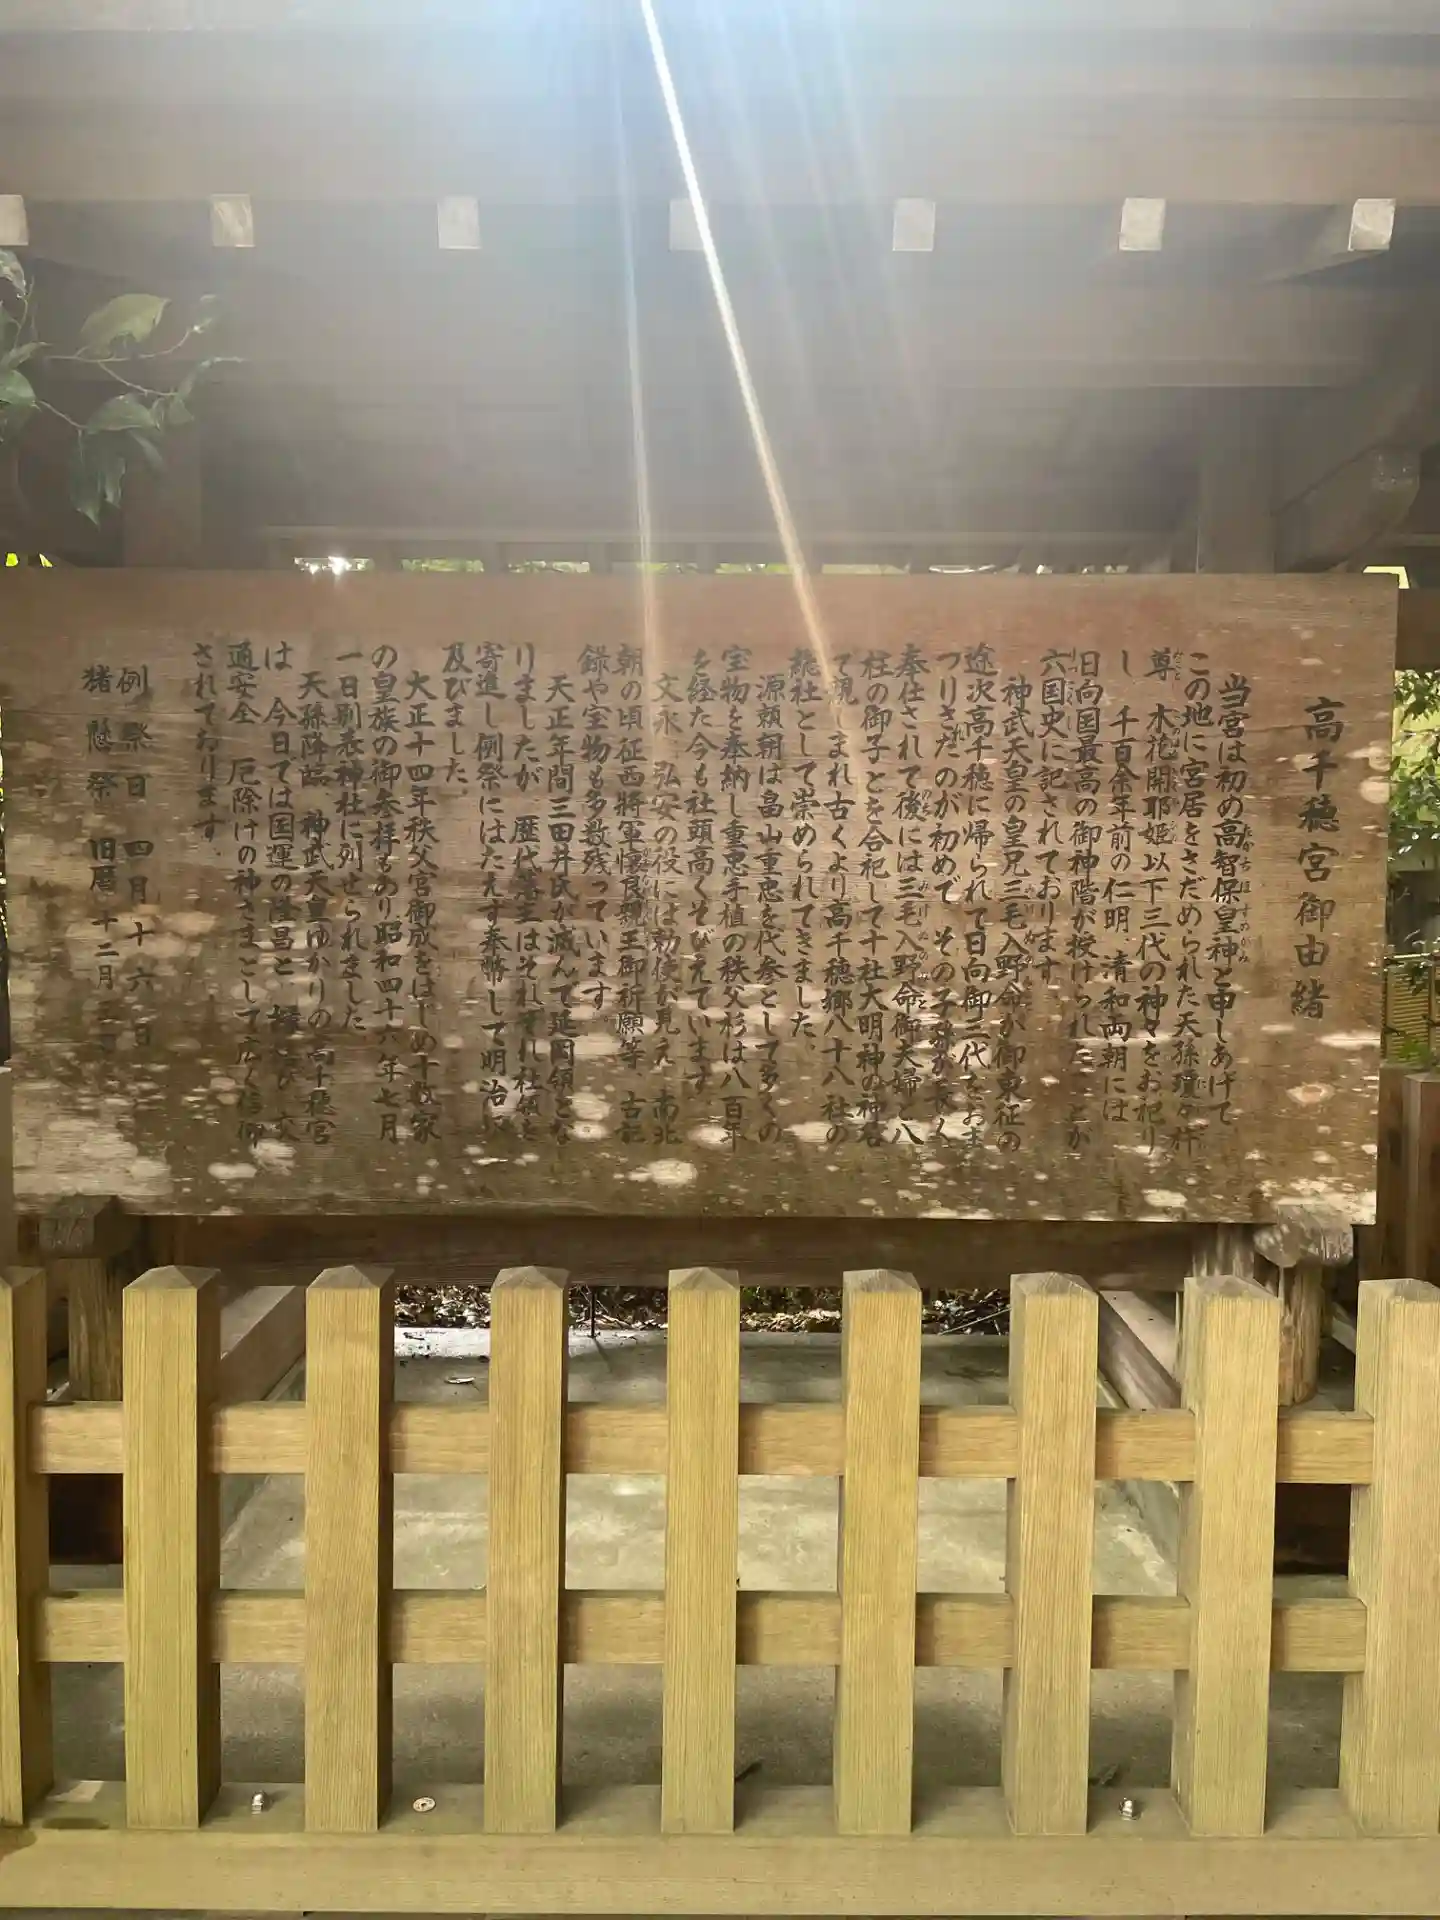 高千穂宮御由緒
当宮は初め高智保皇神と申しあげて
この地に宮居をさだめられた天孫瓊々杵
尊 木花開耶姫以下三代の神々をお祀り
し 千百余年前の仁明、清和両朝には
日向国最高の御神階が授けられたことが
六国史に記されております。
神武天皇の皇兄三毛入野命が御東征の
途次高千穂に帰られて日向御三代をおま
つりされたのが初めで、その子孫が長く
奉仕されて後には三毛入野命御夫婦と八
柱の御子とを合祀して十社大明神の神名
で親しまれ古くより高千穂郷八十八社の
総社として崇められてきました。
源頼朝は畠山重忠を代参として多くの
宝物を奉納し重忠手植の秩父杉は八百年
を経た今も社頭高くそびえています。
文永、弘安の役には勅使が見え 南北
朝の頃征西将軍懐良親王御祈願等 古記
録や宝物も多数残っています。
天正年間三田井氏が滅んで延岡領とな
りましたが、歴代藩主はそれぞれ社領を
寄進し例祭にはたえず奉幣して明治に
及びました。
大正十四年秩父宮御成をはじめ十数家
の皇族の御参拝もあり昭和四十六年七月
一日別表神社に列せられました。
天孫降臨、神武天皇ゆかりの高千穂宮
は 今日では国運の隆昌と 交
通安全 厄除けの神さまとして広く信仰
されております。
例祭日 四月十六日
猪懸祭 旧暦十二月三日